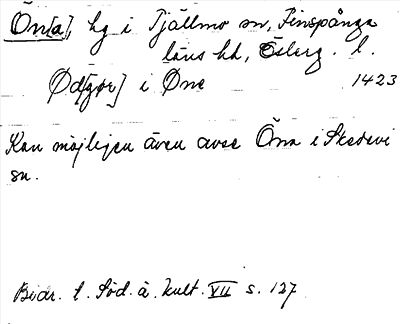 Ön[a], hg i Tjällmo sn, Finspånga
läns hd, Österg. l.
Ød[gør] i Øne 1423
Kan möjligen även avse Öna i Skedevi
sn.
Bidr. t. Söd. å. kult. VII s. 127